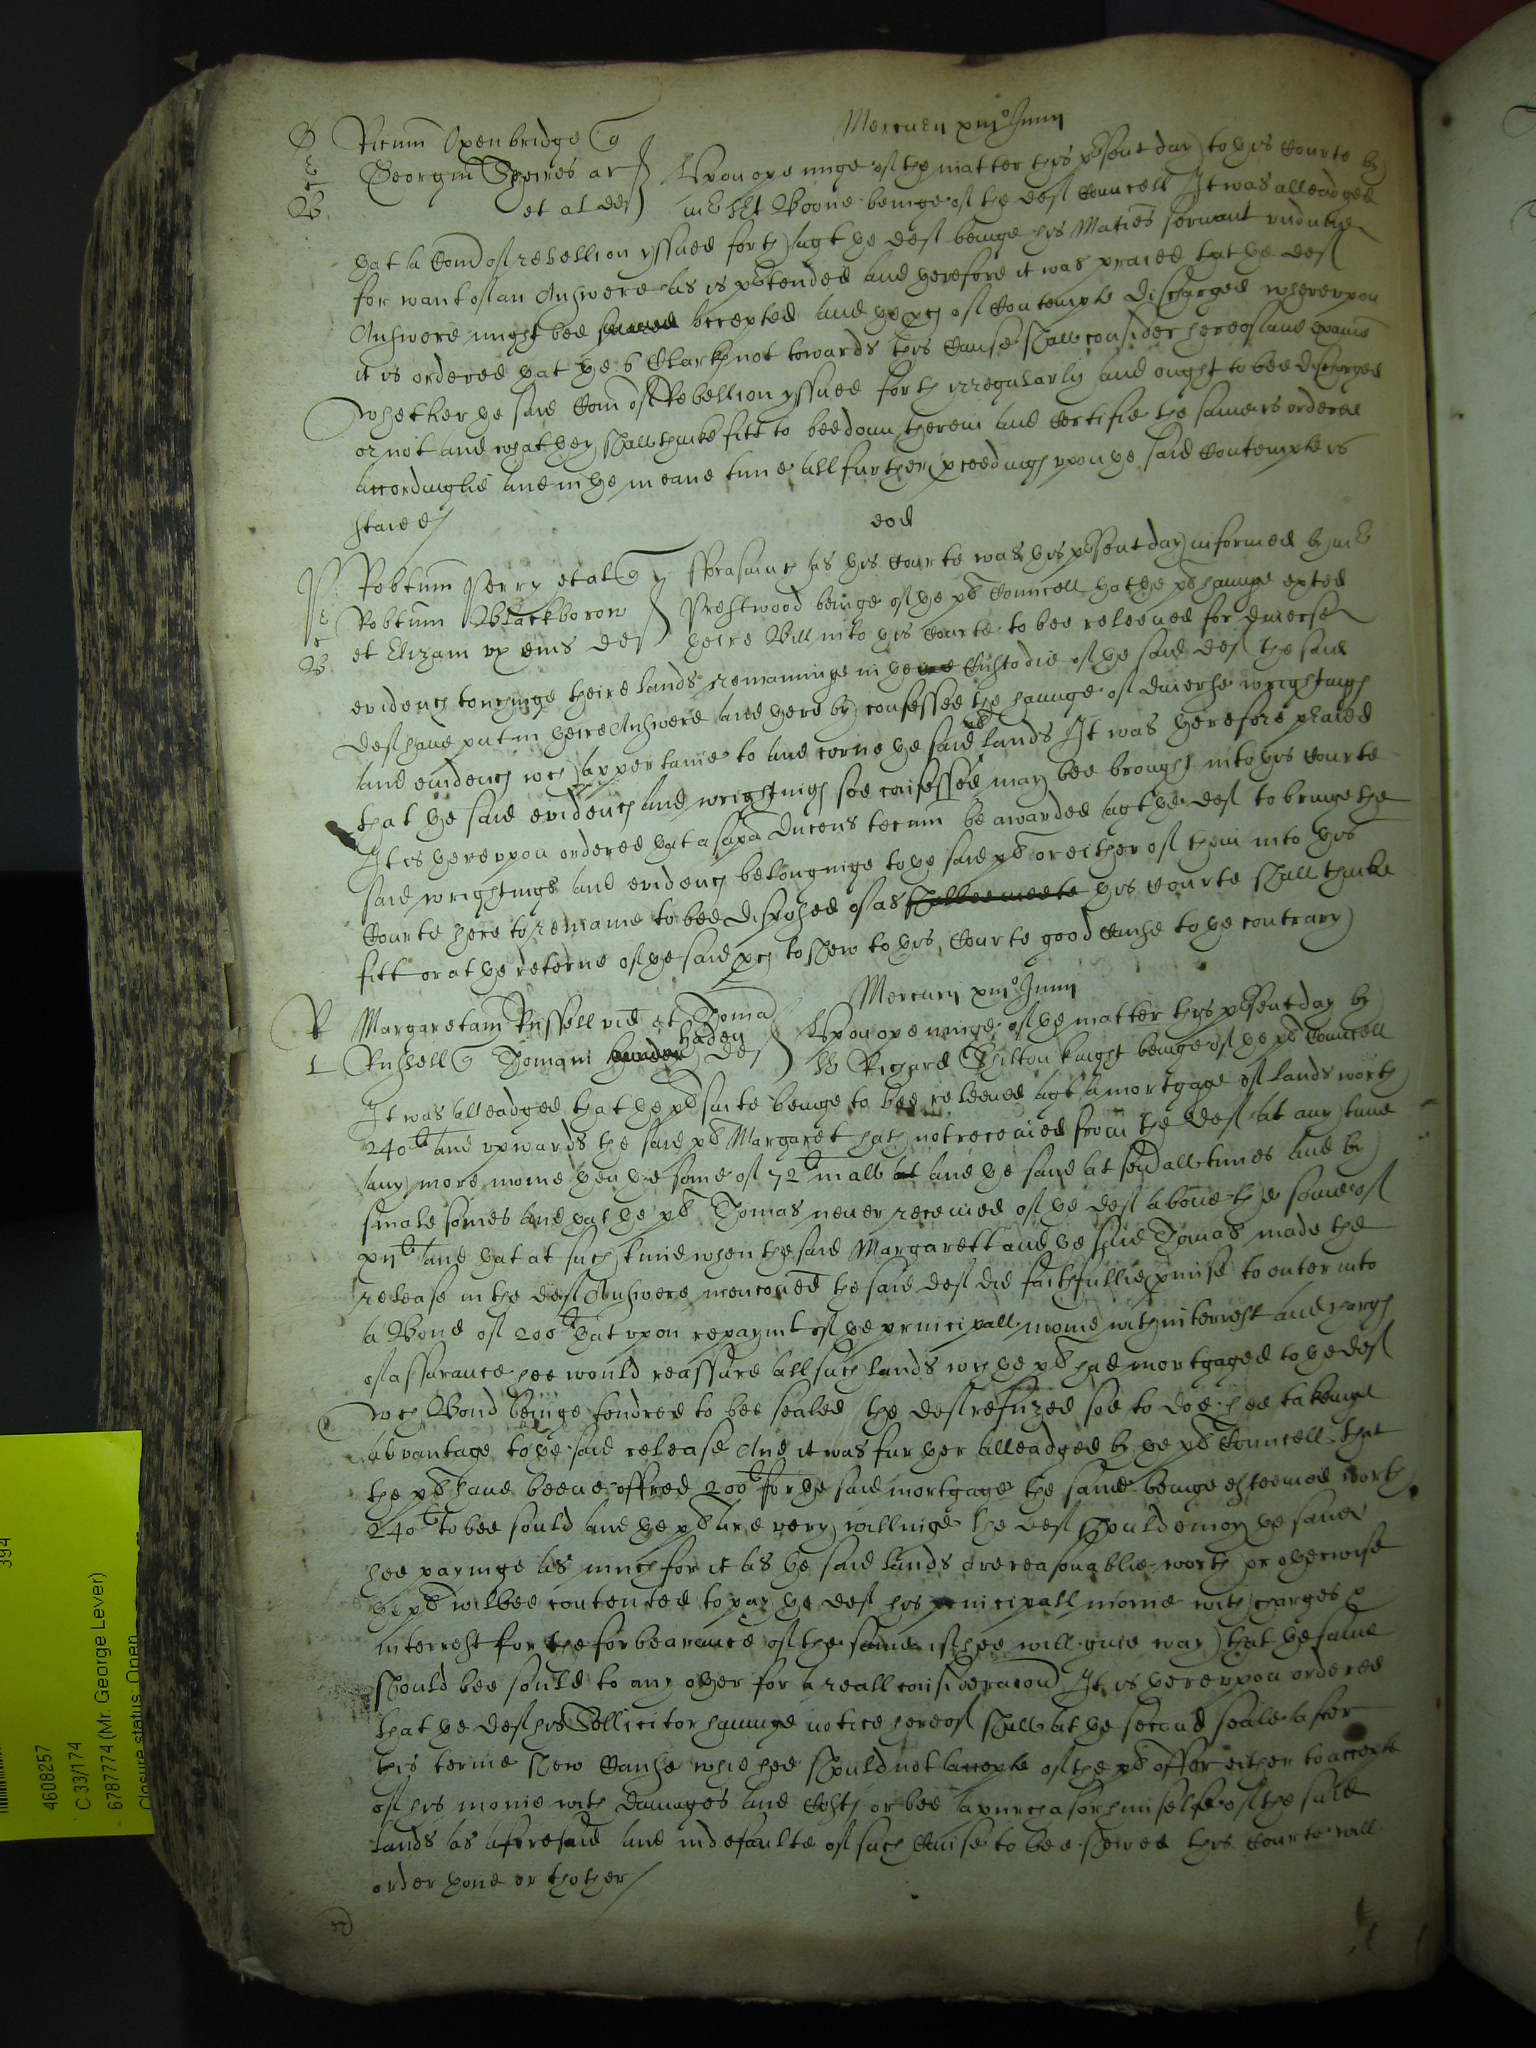 Mercurij xiijo Junij
Ricum Oxenbridge q
Georgiu Speires ar Upon openinge of the matter this psent day to this Courte by
et al def mr Boone beinge of the def Councell It was alleadged
yat a Com of rebellion yssued forth agt ye def beinge his Maties servant
for want of an Answere as is ptended and therefore it was praied that ye def
Answere might bee accepted and ye pces of Contempte discharged whereupon
it is ordered yat ye 6 Clarkes not towards this Cause shall consider hereof and examine
whether ye said Com of Rebellion yssued forth irregularly and ought to bee discharged
or not and what they shall thinke fitt to bee donn therein and Certifie the same is ordered
accordinglie and in ye meane time all further pceedings upon ye said Contempte is
staied
eod
Robtum Perry et al q fforasmuch as this Courte was this psent day informed by mr
Robtum Blackborow Prestwood beinge of ye pl Councell that the pl havinge exted
et Elizam ux eius def theire Bill into this Courte to bee releeved for diverse
evidences touchinge theire lands remaininge in ye Custodie of ye said def the said
def have put in theire Answere and thereby confessed the havinge of diverse wrightings
and evidences wch appertaine to and concerne ye said pl lands It was therefore praied
that ye said evidences and wrightings soe confessed may bee brought into this Courte
It is thereupon ordered yat a sapena Ducens tecum be awarded agt ye def to bringe the
said wrightings and evidences belonginge to ye said pl or either of them into this
Courte here to remaine to bee disposed of as this Courte shall thinke
fitt or at ye retorne of ye said pces to shew to this Courte good Cause to ye contrary
Mercurij xiijo Junij
Margaretam Russell vid et Thoma
Russell q Thomam haden def Upon openinge of ye matter this psent day by
Sr Richard knight beinge of ye pl Councell
It was alleadged that ye pl suite beinge to bee releeved agt a mortgage of lands worth
240li and upwards the said pl Margaret hath not received from the def at any time
any more monie then the some of 72li in all and ye said at severall times and by
smale somes and yat ye pl Thomas never received of ye def above the some of
xijli and yat at such time when the said Margarett and ye said Thomas made the
release in the def Answere mencioned the said def did faithfullie pmise to enter into
a Bond of 200li yat upon repaymt of ye principall monie with interrest and charges
of assurance hee would reassure all such lands wch ye pl had mortgaged to ye def
wch Bond beinge tendred to bee sealed the def refuzed soe to doe hee takeinge
advantage to ye said release And it was further alleadged by ye pl Councell that
the pl have beene offred 200li for ye said mortgage the same beinge esteemed worth
240li to bee sould and ye pl are very willinge the def should enioy ye same
hee payinge as much for it as ye said lands are reasonablie worth or otherwise
ye pl wilbee contented to pay ye def his principall monie with charges
interrest for the forbearance of the same if hee will give way that ye same
should bee sould to any other for a reall consideracon It is thereupon ordered
that ye def his Sollicitor havinge notice hereof shall at ye second seale after
this terme shew Cause whie hee should not accepte of the pl offer either to accepte
of his monie with damages and Costs or bee a purchasor himselfe of the said
lands as aforesaid and in defaulte of such Cause to bee shewed this Courte will
order thone or thother
394
4608257
C 33/174
67877774 (Mr. George Lever)
Closure status: Open